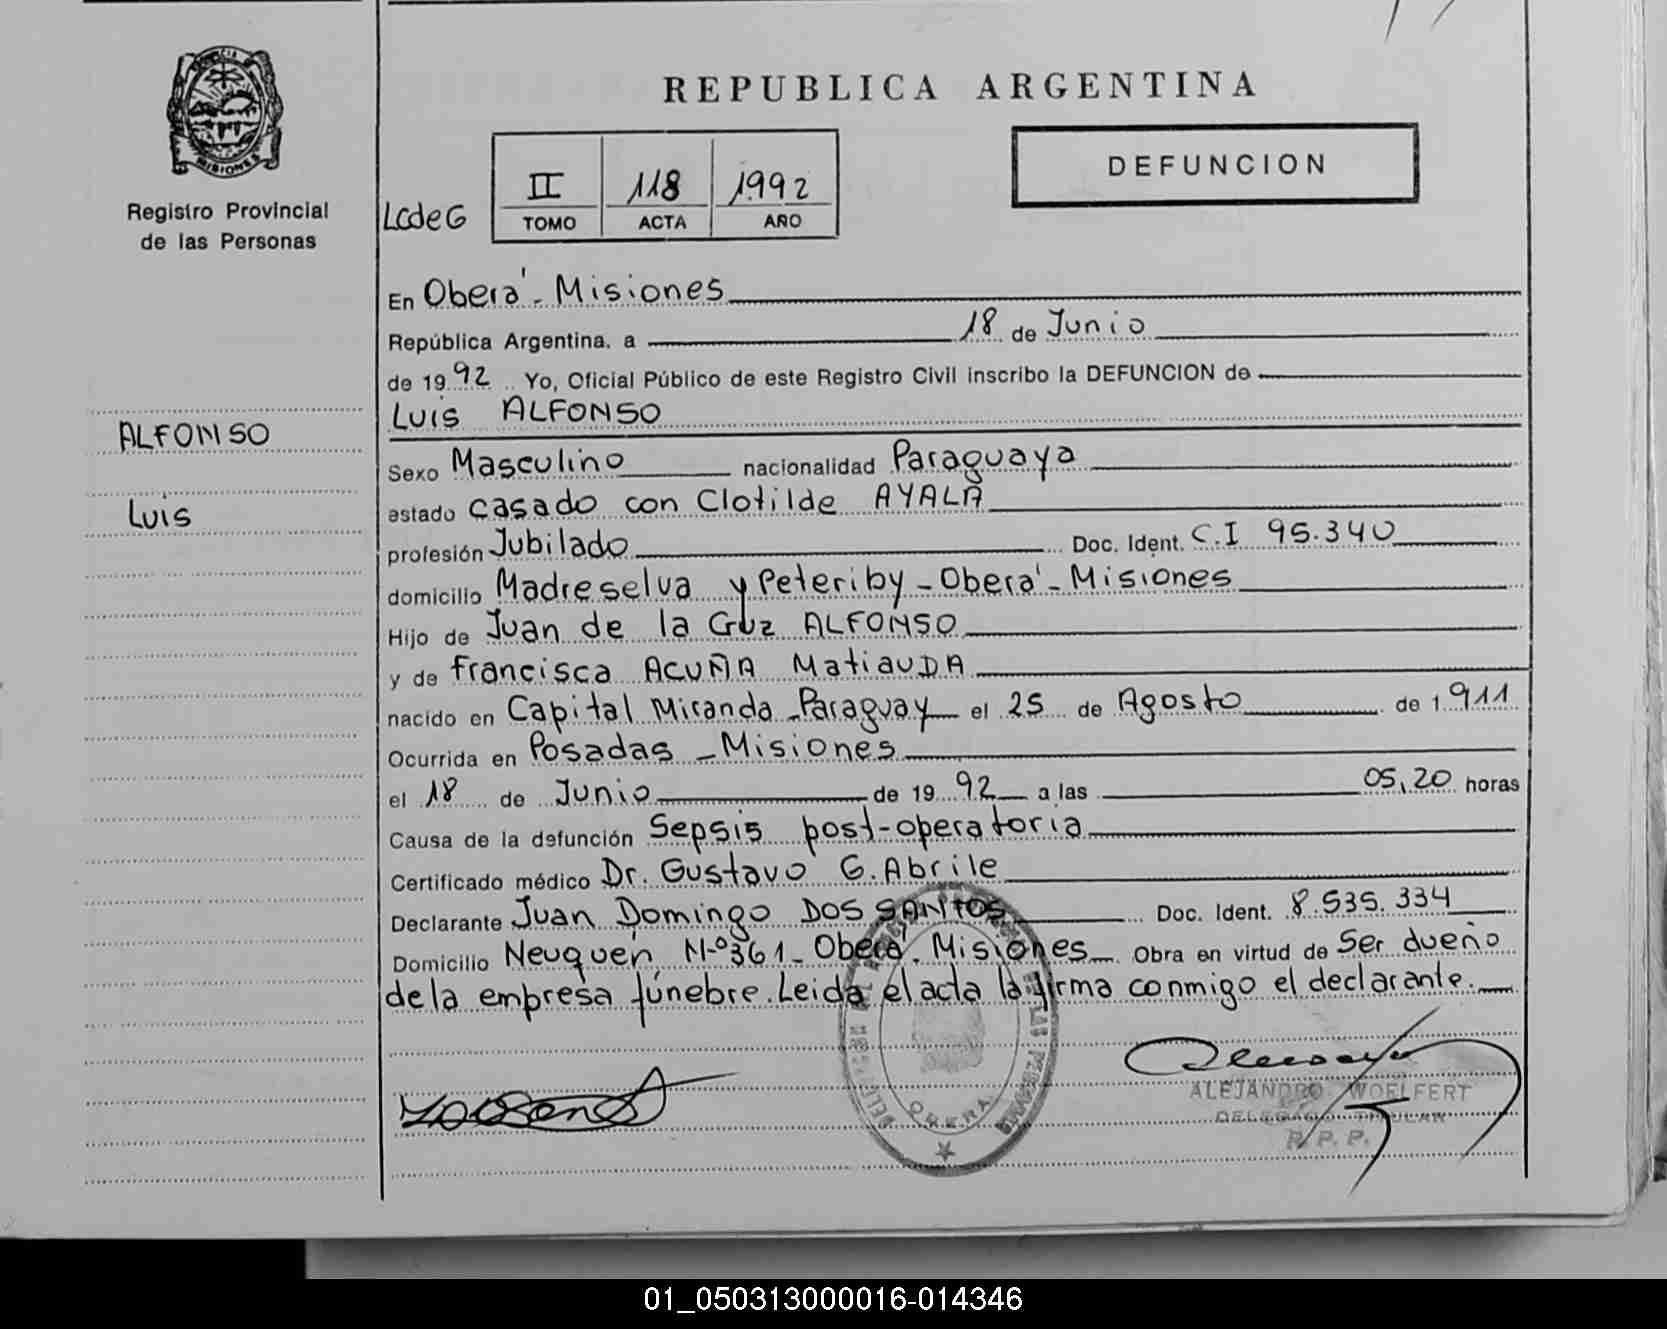 REPUBLICA ARGENTINA
MISIONES
Registro Provincial
de las Personas
LCdeG
II 118 1992
TOMO ACTA AÑO
DEFUNCION
En Oberá - Misiones
República Argentina, a 18 de Junio
de 1992 Yo, Oficial Público de este Registro Civil inscribo la DEFUNCION de
Luis ALFONSO
ALFONSO
Luis
Sexo Masculino nacionalidad Paraguaya
estado casado con Clotilde AYALA
profesión Jubilado Doc. Ident. C.I 95.340
domicilio Madreselva y Peteriby - Oberá - Misiones
Hijo de Juan de la Cruz ALFONSO
y de francisca ACUÑA MatiauDA
nacido en Capital Miranda - Paraguay el 25 de Agosto de 1911
Ocurrida en Posadas - Misiones
el 18 de Junio de 1992 a las 05,20 horas
Causa de la defunción Sepsis post-operatoria
Certificado médico Dr. Gustavo G. Abrile
Declarante Juan Domingo DOS SANTOS Doc. Ident. 8.535.334
Domicilio Neuquén Nº 361 - Oberá - Misiones Obra en virtud de Ser dueño
de la empresa fúnebre. Leida el acta la firma conmigo el declarante.
OBERA
ALEJANDRO WOELFERT
DELEGADO TITULAR
R. P. P.
01_050313000016-014346